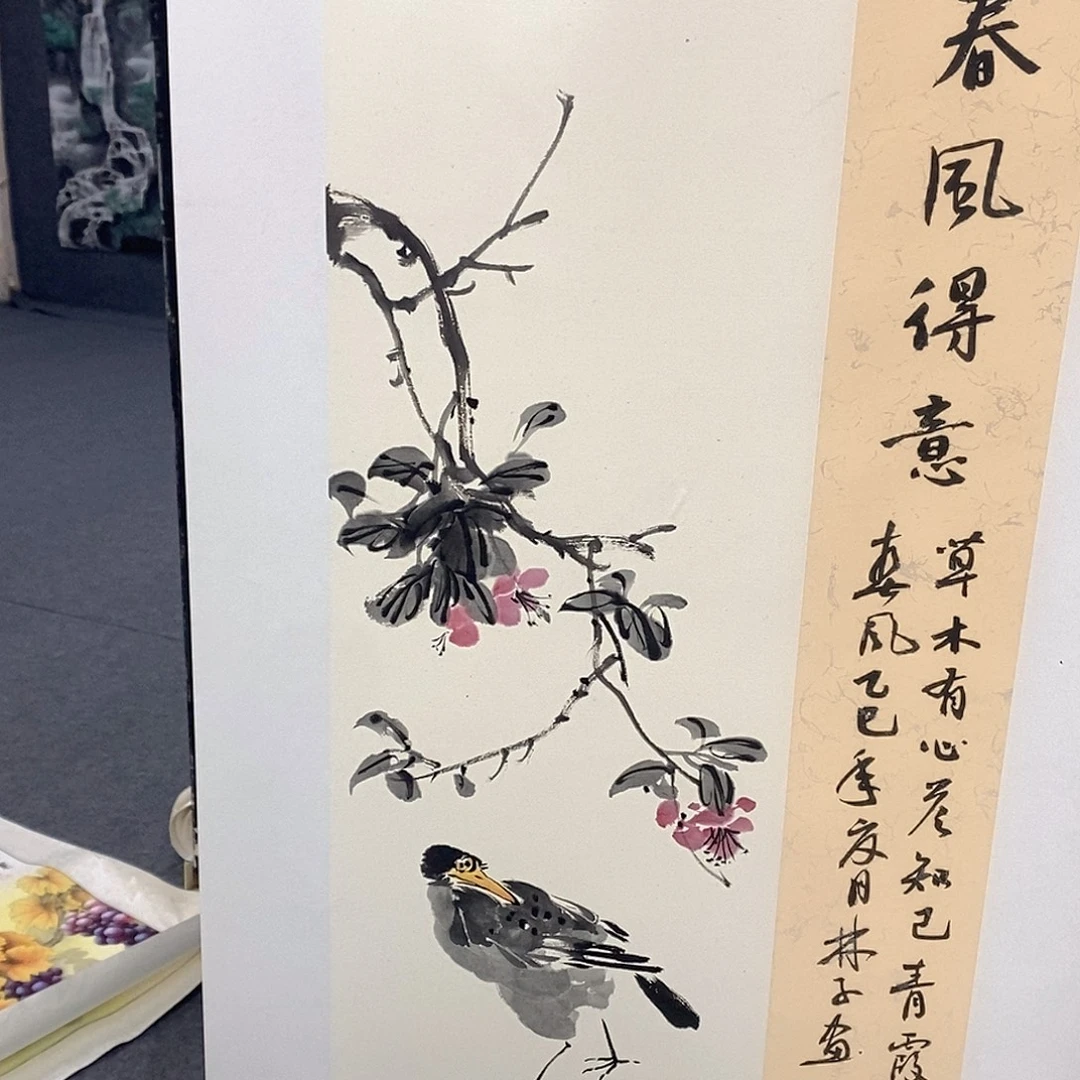 春風得意
草木有心答知己青霞
春风乙巳年夏月林子画